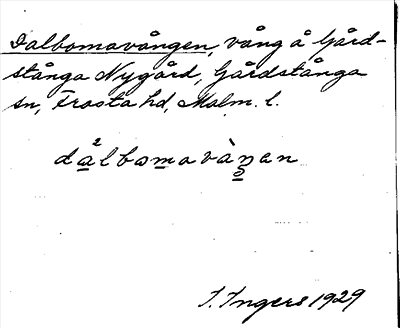 Dalbomavången, vång å Gård-
stånga Nygård, Gårdstånga
sn, Frosta hd, Malm. l.
dålbomavàŋen
I. Ingers 1929